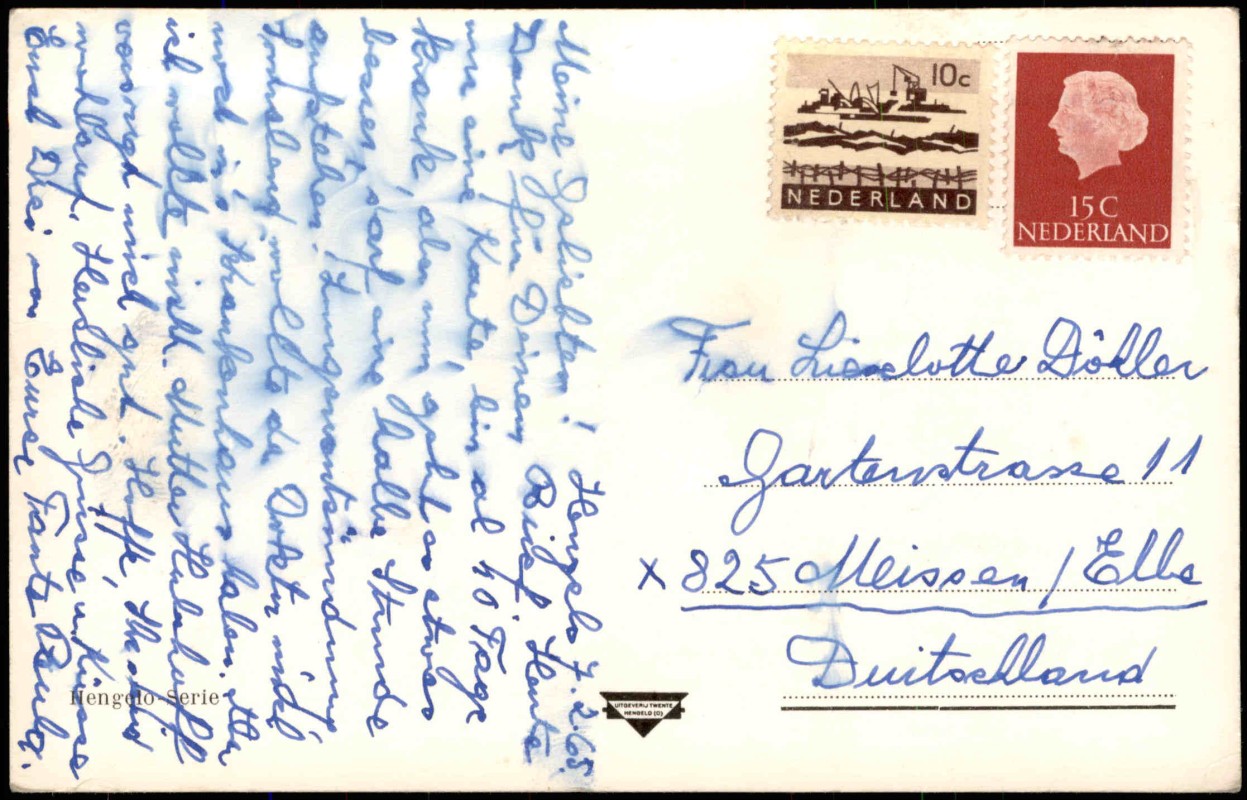 Meine Geliebten! Hengelo 7.2.65.
Dank für Deinen Brief. Heute
nur eine Karte, bin al 10 Tage
krank, aber nun geht es etwas
besser, darf eine halbe Stunde
aufstehen. Lungenentzündung
wollte de Doktor mich
noch in's Krankenhaus haben. Aber
ich wollte nicht. Mutter
versorgt mich gut. Hoffe, Ihr seid
wohlauf. Herzliche Grüsse u. Küsse
Euch Drei von Eurer Tante Paula.
Hengelo-Serie
UITGEVERIJ TWENTE
HENGELO (O)
10c
NEDERLAND
15 C
NEDERLAND
Frau Lieselotte Döhler
Gartenstrasse 11
x 825 Meissen / Elbe
Duitschland